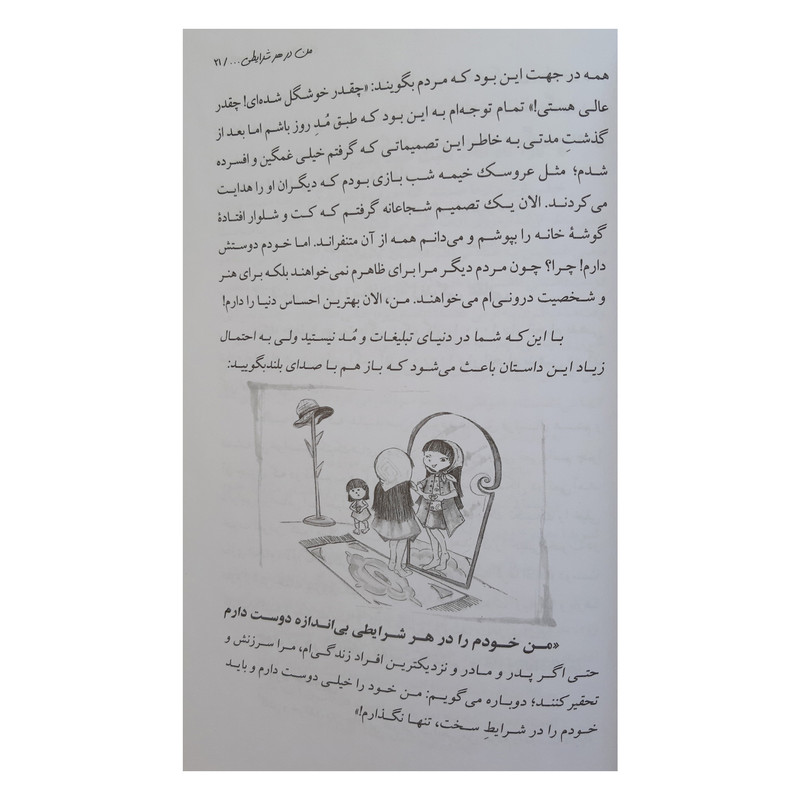 من در هر شرایطی... / ۲۱
همه در جهت این بود که مردم بگویند: «چقدر خوشگل شده‌ای! چقدر
عالی هستی!» تمام توجه‌ام به این بود که طبق مُدِ روز باشم اما بعد از
گذشتِ مدتی به خاطر این تصمیماتی که گرفتم خیلی غمگین و افسرده
شدم؛ مثل عروسک خیمه شب بازی بودم که دیگران او را هدایت
می‌کردند. الان یک تصمیم شجاعانه گرفتم که کت و شلوار افتادهٔ
گوشهٔ خانه را بپوشم و می‌دانم همه از آن متنفراند. اما خودم دوستش
دارم! چرا؟ چون مردم دیگر مرا برای ظاهرم نمی‌خواهند بلکه برای هنر
و شخصیت درونی‌ام می‌خواهند. من، الان بهترین احساس دنیا را دارم!
با این‌که شما در دنیای تبلیغات و مُد نیستید ولی به احتمال
زیاد این داستان باعث می‌شود که باز هم با صدای بلند بگویید:
«من خودم را در هر شرایطی بی‌اندازه دوست دارم
حتی اگر پدر و مادر و نزدیکترین افراد زندگی‌ام، مرا سرزنش و
تحقیر کنند؛ دوباره می‌گویم: من خود را خیلی دوست دارم و باید
خودم را در شرایطِ سخت، تنها نگذارم!»